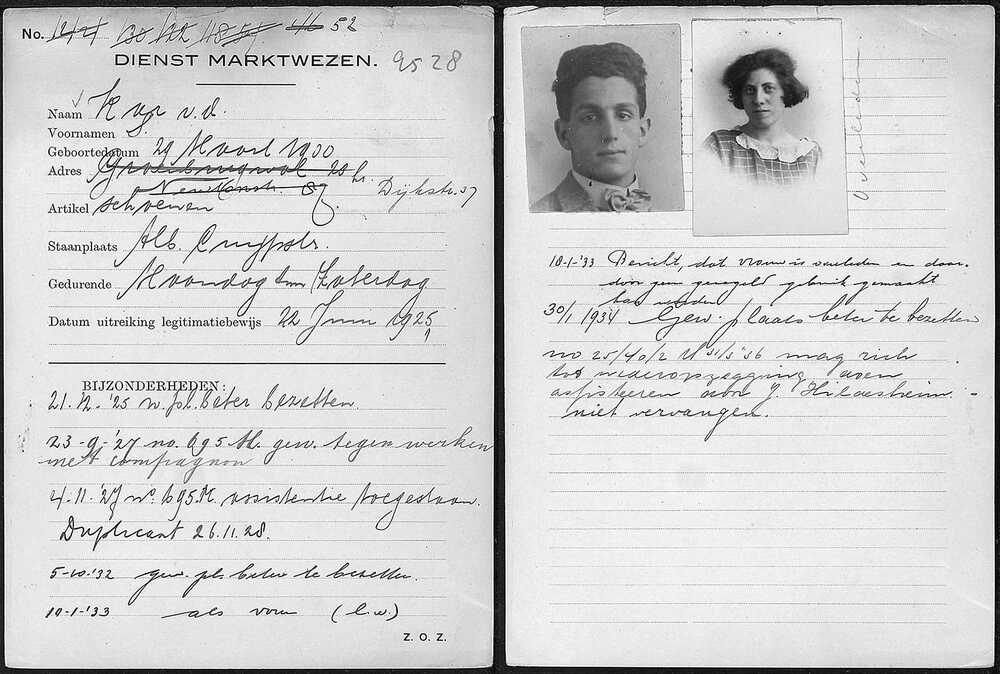 No. 52
DIENST MARKTWEZEN. 9528
Naam Kar v.d.
Voornamen S.
Geboortedatum 29 Maart 1900
Adres 28 hs.
Dijkstr. 57
Artikel schoenen
Staanplaats Alb. Cuijpstr.
Gedurende Maandag t/m Zaterdag
Datum uitreiking legitimatiebewijs 22 Juni 1925
BIJZONDERHEDEN:
21.12.'25 w. pl. beter bezetten.
23-9-'27 no. 695 M. gew. tegen werken
met compagnon
4-11-'27 no. 695 M. assistentie toegestaan.
Duplicaat 26.11.28.
5-10-'32 gew. pls beter te bezetten.
10-1-'33 als voren (l.w.)
Z. O. Z.
Overleden
10-1-'33 Bericht, dat vrouw is overleden en daar-
door geen geregeld gebruik gemaakt
kan worden
30/1 1934 Gew. plaats beter te bezetten
no 25/40/2 M 31/3 '36 mag zich
tot wederopzegging doen
assisteeren door J. Hildesheim -
niet vervangen.